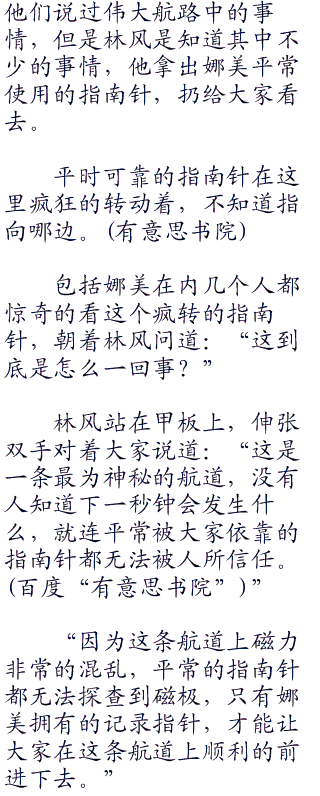 他们说过伟大航路中的事
情，但是林风是知道其中不
少的事情，他拿出娜美平常
使用的指南针，扔给大家看
去。
平时可靠的指南针在这
里疯狂的转动着，不知道指
向哪边。(有意思书院)
包括娜美在内几个人都
惊奇的看这个疯转的指南
针，朝着林风问道：“这到
底是怎么一回事？”
林风站在甲板上，伸张
双手对着大家说道：“这是
一条最为神秘的航道，没有
人知道下一秒钟会发生什
么，就连平常被大家依靠的
指南针都无法被人所信任。
(百度“有意思书院”)”
“因为这条航道上磁力
非常的混乱，平常的指南针
都无法探查到磁极，只有娜
美拥有的记录指针，才能让
大家在这条航道上顺利的前
进下去。”